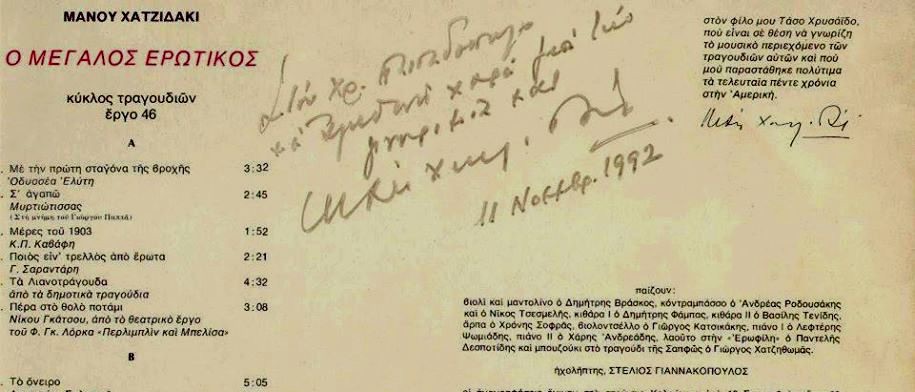 ΜΑΝΟΥ ΧΑΤΖΙΔΑΚΙ
Ο ΜΕΓΑΛΟΣ ΕΡΩΤΙΚΟΣ
κύκλος τραγουδιῶν
ἔργο 46
Α
. Μὲ τὴν πρώτη σταγόνα τῆς βροχῆς 3:32
Ὀδυσσέα Ἐλύτη
. Σ' ἀγαπῶ 2:45
Μυρτιώτισσας
(Στὴ μνήμη τοῦ Γιώργου Παππᾶ)
. Μέρες τοῦ 1903 1:52
Κ.Π. Καβάφη
. Ποιὸς εἶν' τρελλὸς ἀπὸ ἔρωτα 2:21
Γ. Σαραντάρη
. Τὰ Λιανοτράγουδα 4:32
ἀπὸ τὰ δημοτικὰ τραγούδια
. Πέρα στὸ θολὸ ποτάμι 3:08
Νίκου Γκάτσου, ἀπὸ τὸ θεατρικὸ ἔργο
τοῦ Φ. Γκ. Λόρκα «Περλιμπλὶν καὶ Μπελίσα»
Β
. Τὸ ὄνειρο 5:05
Στὸν Χρ. Παπαδόπουλο
χαρὰ γιὰ
γνωριμία
11 Νοεμβρ. 1992
στὸν φίλο μου Τάσο Χρυσαΐδο,
ποὺ εἶναι σὲ θέση νὰ γνωρίζη
τὸ μουσικὸ περιεχόμενο τῶν
τραγουδιῶν αὐτῶν καὶ ποὺ
μοῦ παραστάθηκε πολύτιμα
τὰ τελευταῖα πέντε χρόνια
στὴν Ἀμερική.
παίζουν:
βιολὶ καὶ μαντολίνο ὁ Δημήτρης Βράσκος, κόντραμπάσσο ὁ Ἀνδρέας Ροδουσάκης
καὶ ὁ Νίκος Τσεσμελής, κιθάρα Ι ὁ Δημήτρης Φάμπας, κιθάρα ΙΙ ὁ Βασίλης Τενίδης,
ἄρπα ὁ Χρόνης Σοφράς, βιολοντσέλλο ὁ Γιῶργος Κατσικάκης, πιάνο Ι ὁ Λεφτέρης
Ψωμιάδης, πιάνο ΙΙ ὁ Χάρης Ἀνδρεάδης, λαοῦτο στὴν «Ἐρωφίλη» ὁ Παντελὴς
Δεσποτίδης καὶ μπουζούκι στὸ τραγούδι τῆς Σαπφῶς ὁ Γιῶργος Χατζηθωμᾶς.
ἠχολήπτης, ΣΤΕΛΙΟΣ ΓΙΑΝΝΑΚΟΠΟΥΛΟΣ